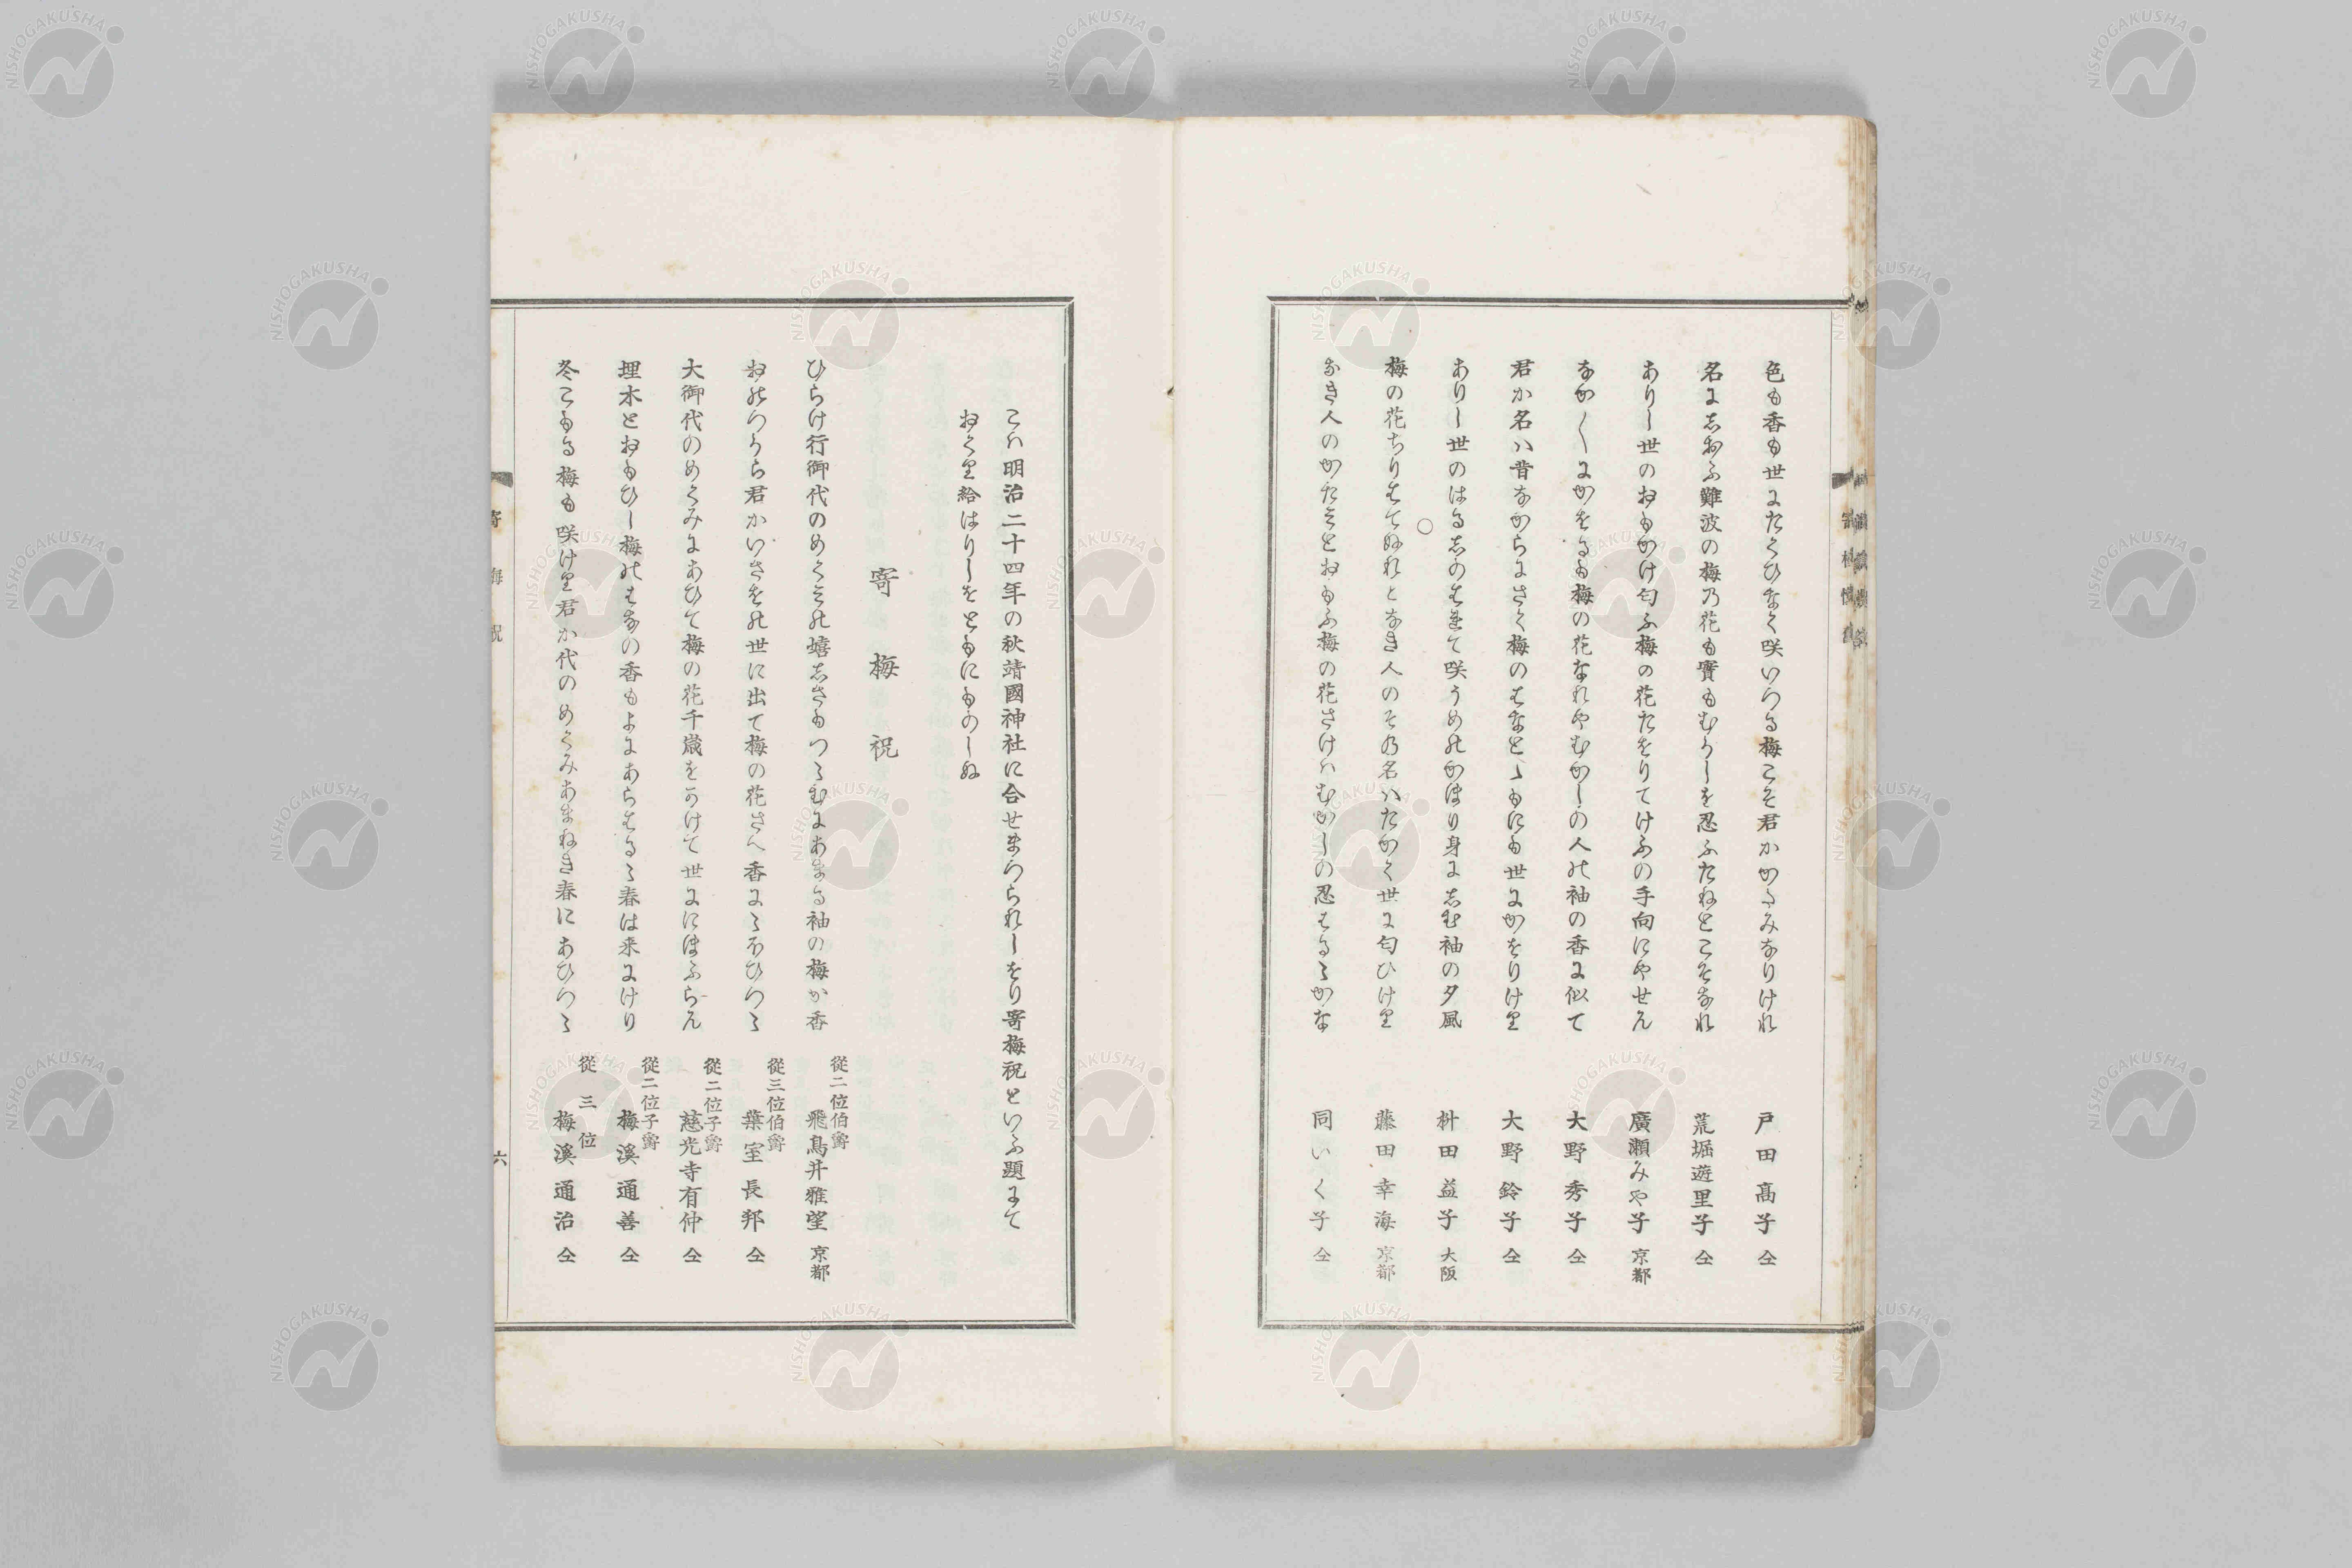 色も香も世にたくひなく咲いつる梅こそ君かかゝみなりけれ 戸田高子 仝
名にしおふ難波の梅乃花も實もむかしを忍ふたねとこそなれ 荒堀遊里子 仝
ありし世のおもかけ匂ふ梅の花たをりてけふの手向にやせん 廣瀬みや子 京都
なか〱にかをるも梅の花なれやむかしの人の袖の香に似て 大野秀子 仝
君か名ハ昔なからにさく梅のはなとゝもにも世にかをりけり 大野鈴子 仝
ありし世のはるしのはれて咲うめのかほり身にしむ袖の夕風 枡田益子 大阪
○
梅の花ちりはてぬれとなき人のその名ハたかく世に匂ひけり 藤田幸海 京都
なき人のかたみとおもふ梅の花さけハむかしの忍はるゝかな 同いく子 仝
こハ明治二十四年の秋靖國神社に合せまつられしをり寄梅祝といふ題にて
おくり給はりしをともにものしぬ
寄梅祝
ひらけ行御代のめくみの嬉しさもつゝむにあまる袖の梅か香 從二位伯爵 飛鳥井雅望 京都
おのつから君かいさをの世に出て梅の花さへ香にゝほひつゝ 從三位伯爵 葉室長邦 仝
大御代のめくみにあひて梅の花千歳をかけて世ににほふらん 從二位子爵 慈光寺有仲 仝
埋木とおもひし梅のはなの香もよにあらはるゝ春は来にけり 從二位子爵 梅溪通善 仝
冬こもる梅も咲けり君か代のめくみあまねき春にあひつゝ 從三位 梅溪通治 仝
寄梅祝
六
NISHOGAKUSHA